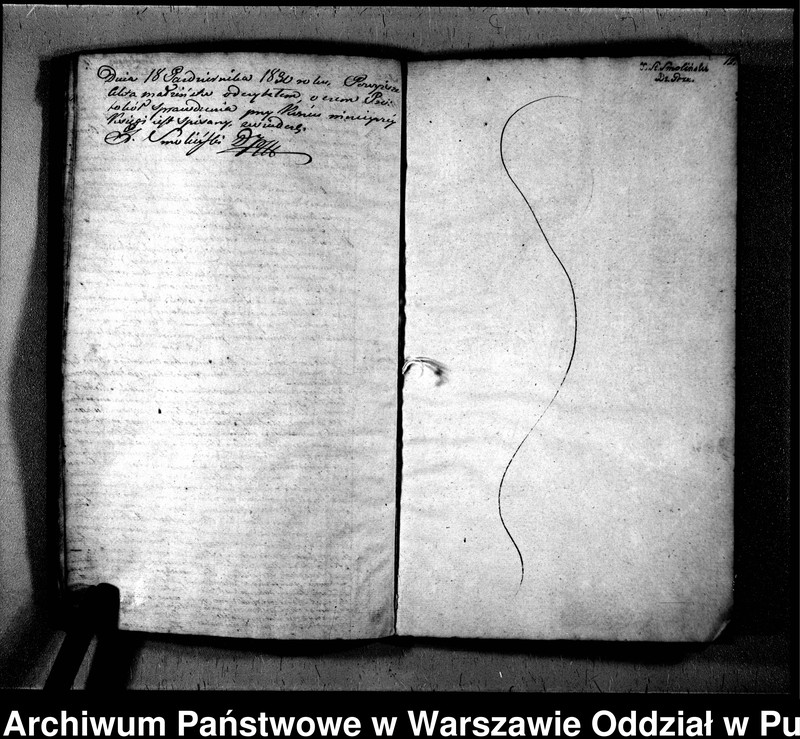 Dnia 18 Października 1830 roku, Powyższe
akta małżeńskie odczytałem, o czem Pro-
tokół sprawdzenia przy końcu niniejszey
Księgi iest spisany. zwierdz.
Smoliński
Smoliński
Archiwum Państwowe w Warszawie Oddział w Pu